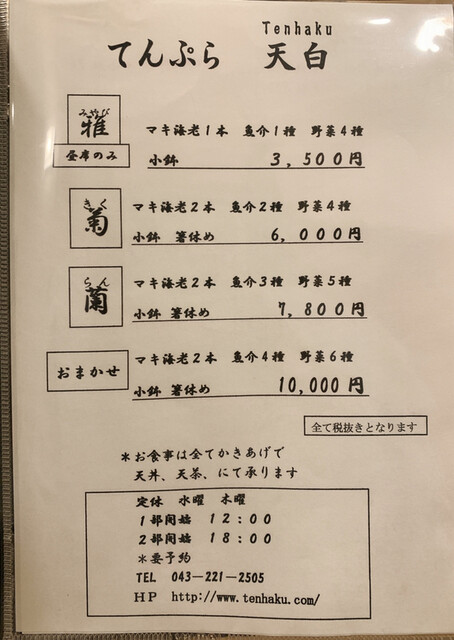 Tenhaku
てんぷら 天白
みやび
雅
昼席のみ
マキ海老1本 魚介1種 野菜4種
小鉢 3,500円
きく
菊
マキ海老2本 魚介2種 野菜4種
小鉢 箸休め 6,000円
らん
蘭
マキ海老2本 魚介3種 野菜5種
小鉢 箸休め 7,800円
おまかせ
マキ海老2本 魚介4種 野菜6種
小鉢 箸休め 10,000円
全て税抜きとなります
*お食事は全てかきあげで
天丼、天茶、にて承ります
定休 水曜 木曜
1部開始 12:00
2部開始 18:00
*要予約
TEL 043-221-2505
HP http://www.tenhaku.com/